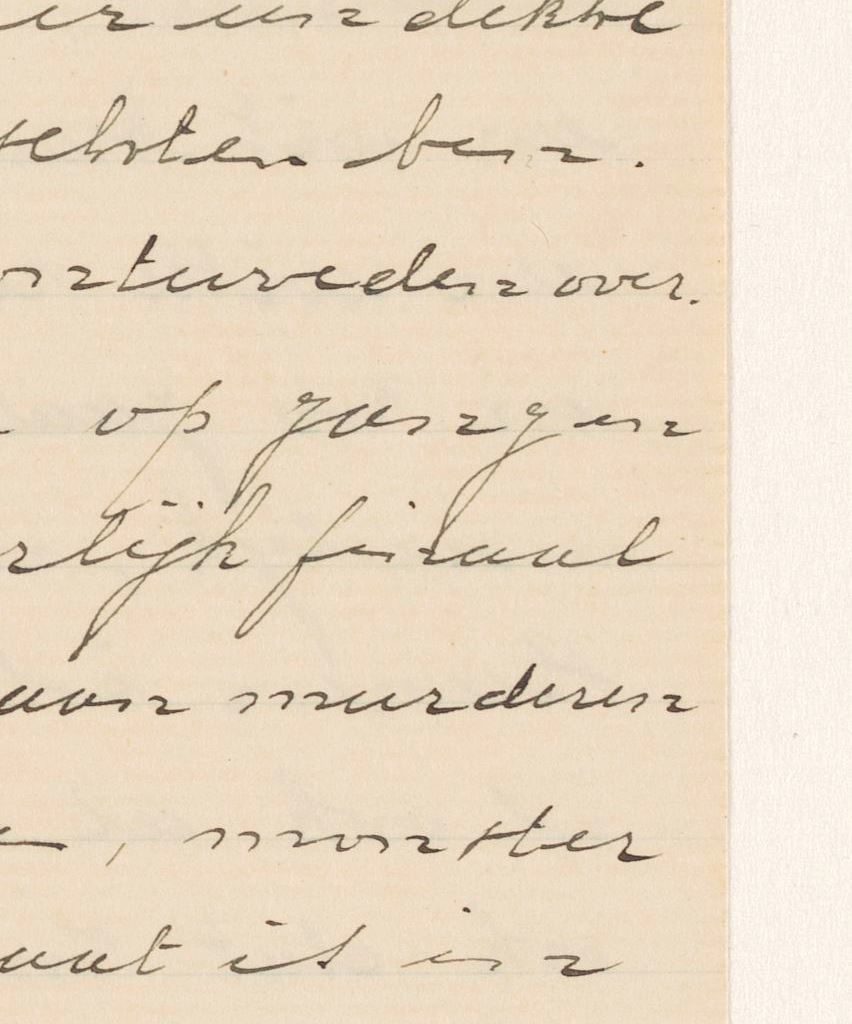 er een dekke
schoten ben.
ontevreden over.
op jongen
rlijk finaal
aan meerderen
, monster
aat is in